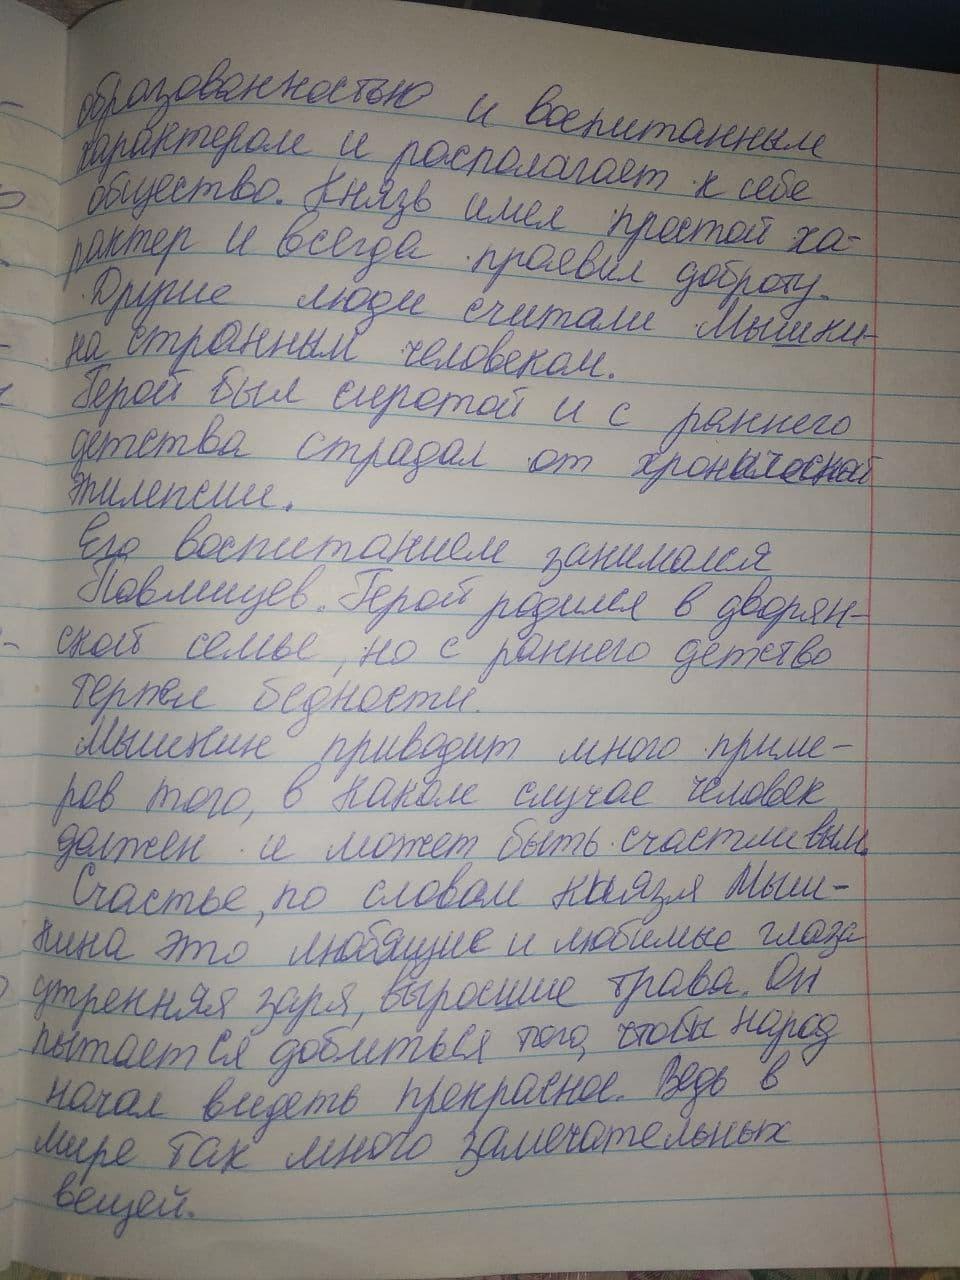 образованностью и воспитанным
характером и располагает к себе
общество. Князь имел простой ха-
рактер и всегда проявил доброту.
Другие люди считали Мышки-
на странным человеком.
Герой был сиротой и с раннего
детства страдал от хронической
эпилепсии.
Его воспитанием занимался
Павлищев. Герой родился в дворян-
ской семье, но с раннего детство
терпел бедности.
Мышкин приводит много приме-
ров того, в каком случае человек
должен и может быть счастливым.
Счастье, по словам князя Мыш-
кина это любящие и любимые глаза
утренняя заря, выросшие трава. Он
пытается добиться того, чтобы народ
начал видеть прекрасное. Ведь в
мире так много замечательных
вещей.